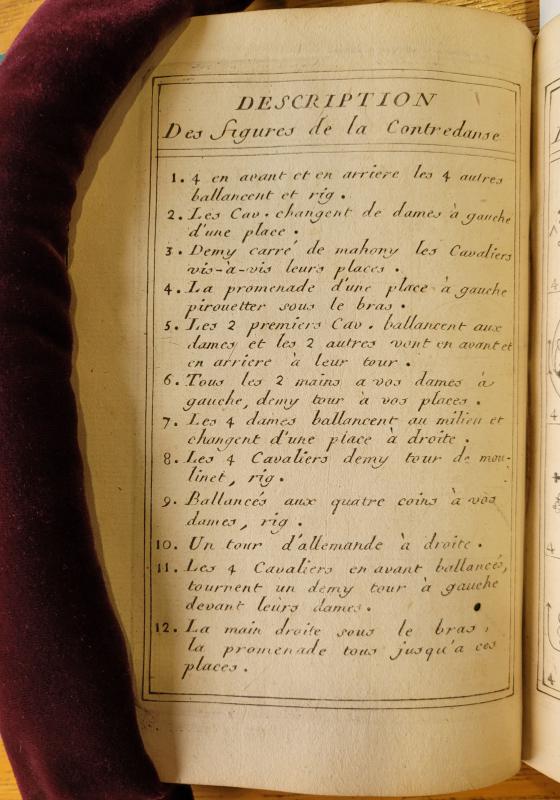 DESCRIPTION
Des figures de la Contredanse
1. 4 en avant et en arriere les 4 autres
ballancent et rig.
2. Les Cav. changent de dames à gauche
d'une place.
3. Demy carré de mahony les Cavaliers
vis-à-vis leurs places.
4. La promenade d'une place à gauche
pirouetter sous le bras.
5. Les 2 premiers Cav. ballancent aux
dames et les 2 autres vont en avant et
en arriere à leur tour.
6. Tous les 2 mains a vos dames à
gauche, demy tour à vos places.
7. Les 4 dames ballancent au milieu et
changent d'une place à droite.
8. Les 4 Cavaliers demy tour de mou-
linet, rig.
9. Ballancés aux quatre coins à vos
dames, rig.
10. Un tour d'allemande à droite.
11. Les 4 Cavaliers en avant ballancés,
tournent un demy tour à gauche
devant leurs dames.
12. La main droite sous le bras,
la promenade tous jusqu'a ces
places.
4
4
4
4